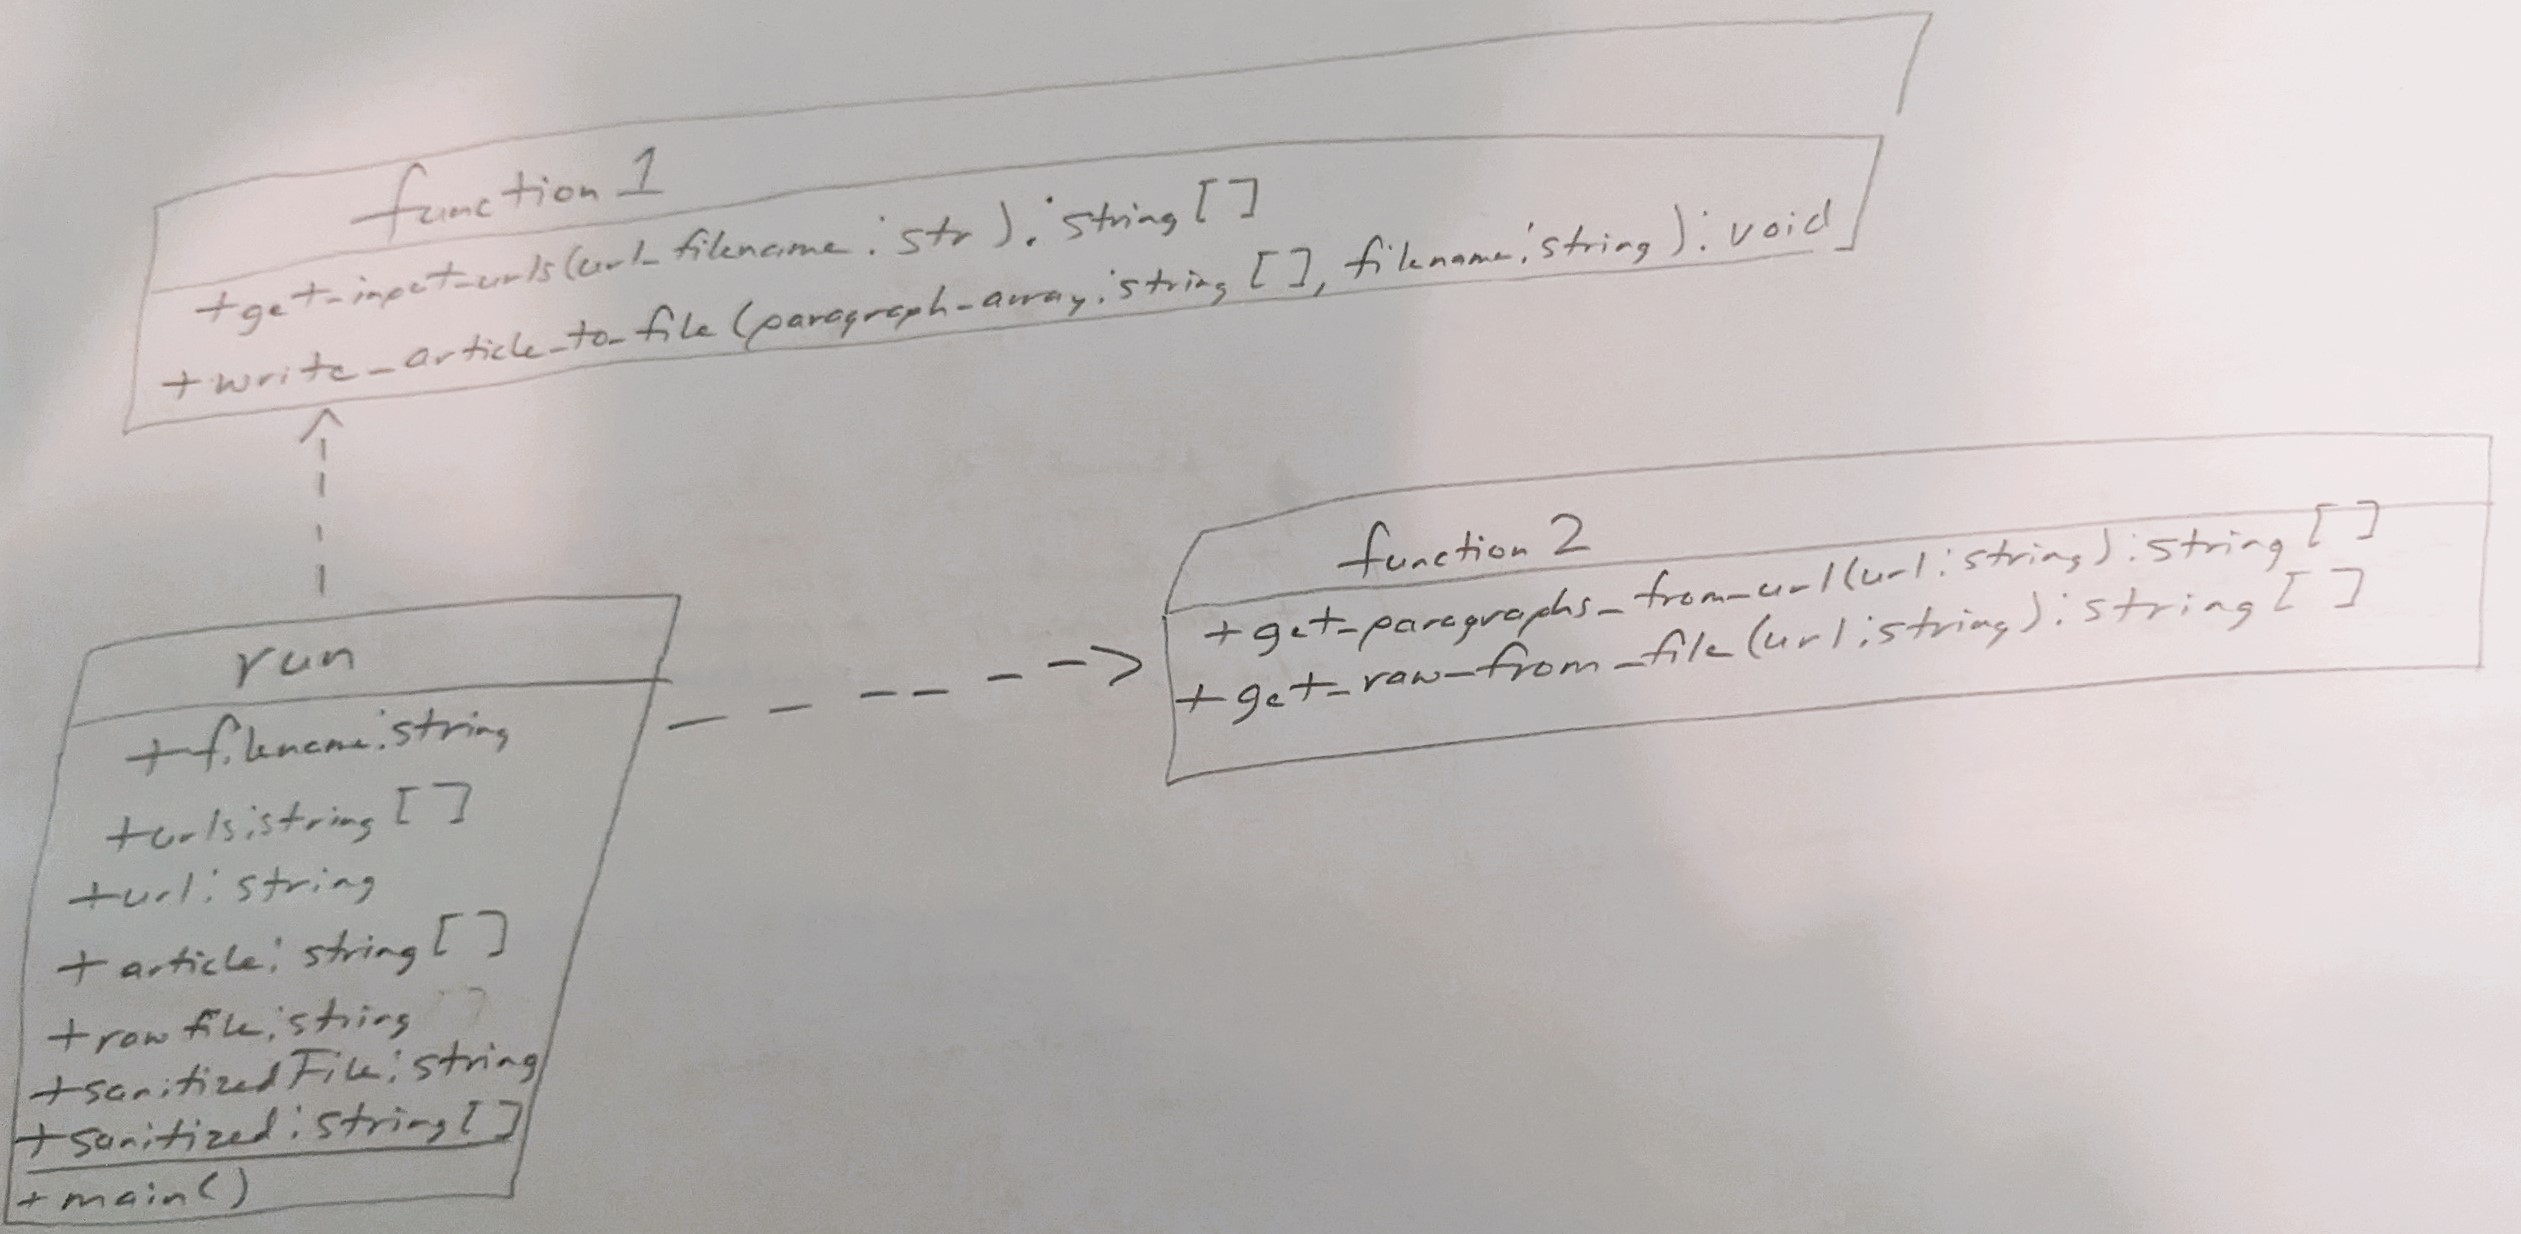 function 1
+get_input_urls(url_filename:str):string[]
+write_article_to_file(paragraph_array:string[], filename:string):void
function 2
+get_paragraphs_from_url(url:string):string[]
+get_raw_from_file(url:string):string[]
run
+filename:string
+urls:string[]
+url:string
+article:string[]
+rawfile:string
+sanitizedFile:string
+sanitized:string[]
+main()